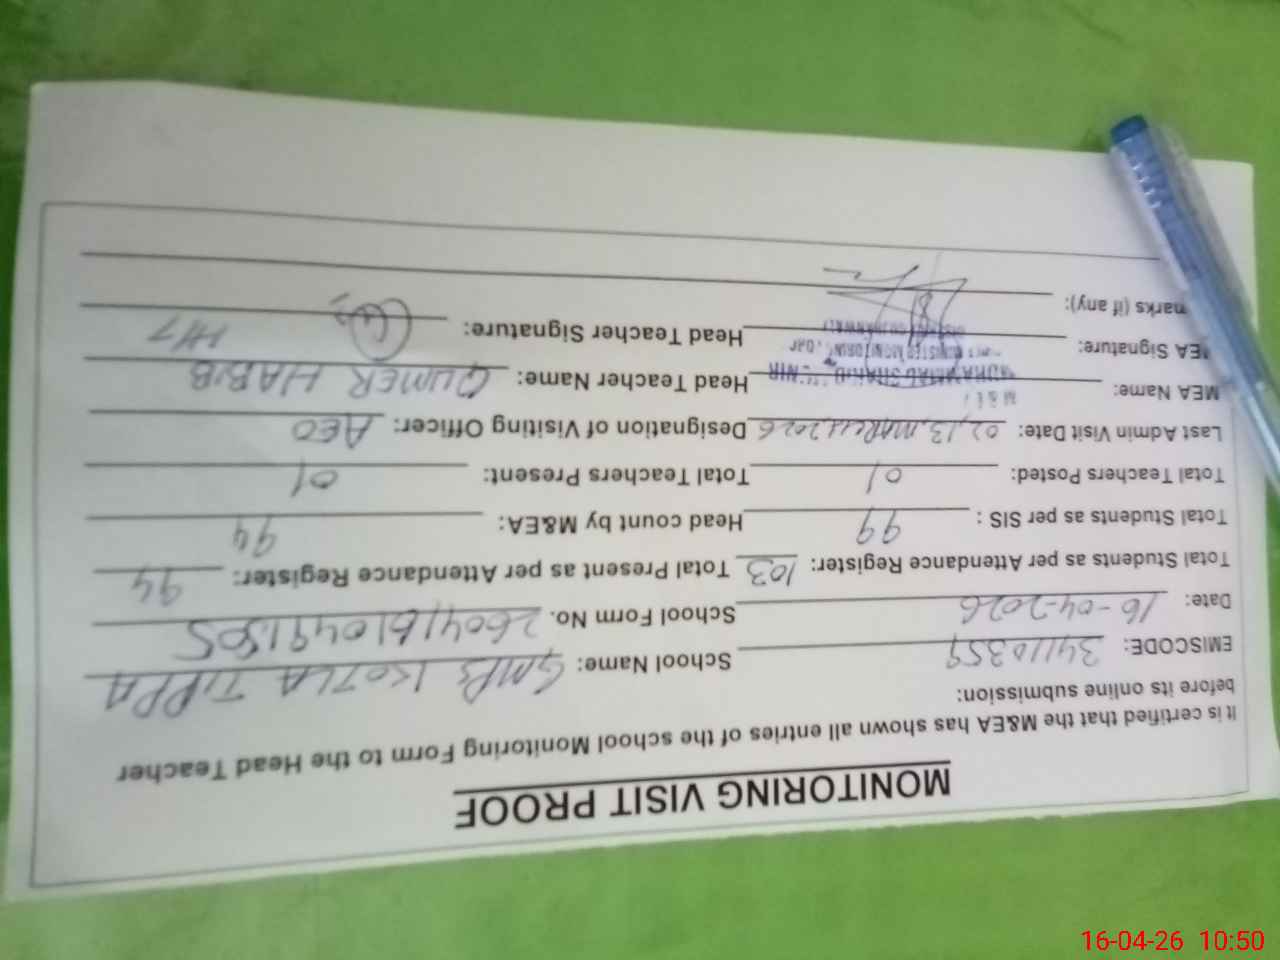 MONITORING VISIT PROOF
It is certified that the M&EA has shown all entries of the school Monitoring Form to the Head Teacher
before its online submission:
EMISCODE: 34110359 School Name: GMPS KOTLA TIPPA
Date: 16-04-2026 School Form No. 26041610491505
Total Students as per Attendance Register: 103 Total Present as per Attendance Register: 94
Total Students as per SIS : 99 Head count by M&EA: 94
Total Teachers Posted: 01 Total Teachers Present: 01
Last Admin Visit Date: 02,13, MARCH, 2026 Designation of Visiting Officer: AEO
MEA Name: Head Teacher Name: QUMER HABIB
MEA Signature: Head Teacher Signature: HT
marks (if any):
16-04-26 10:50